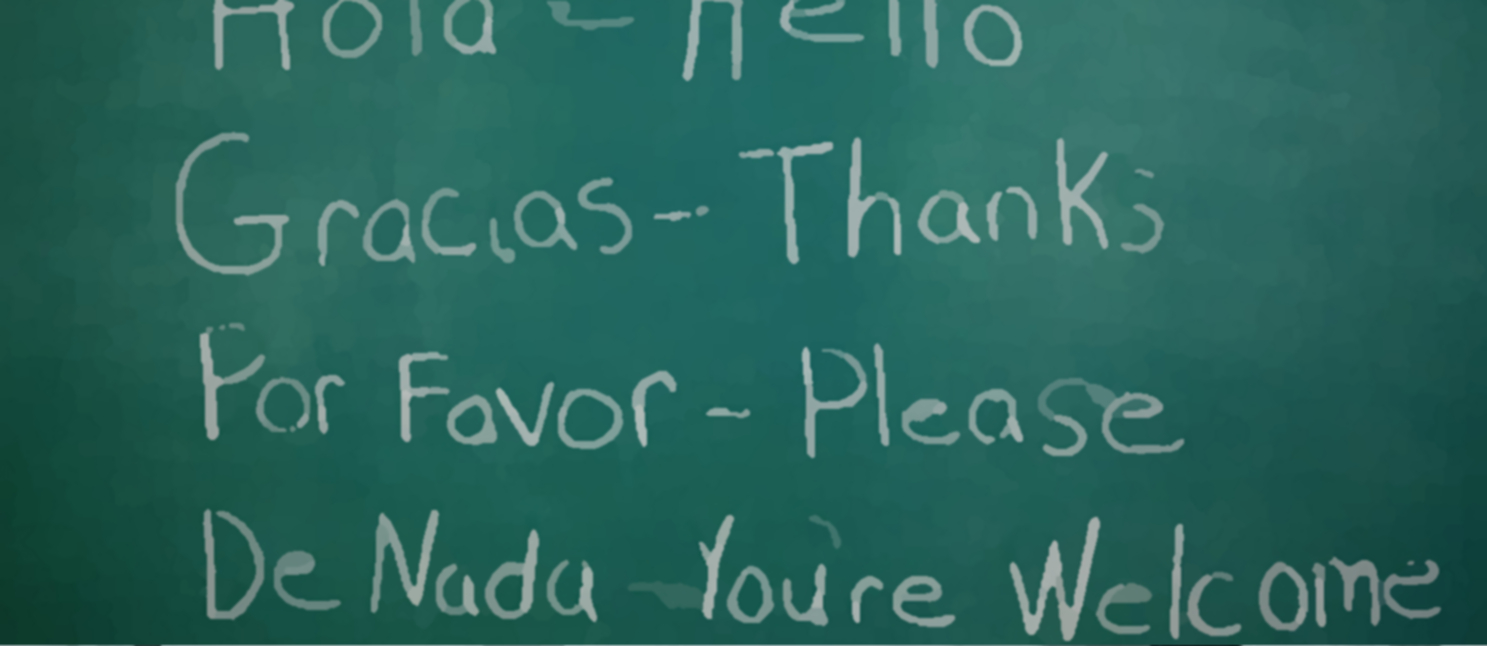 Hola - Hello
Gracias - Thanks
Por Favor - Please
De Nada - You're Welcome